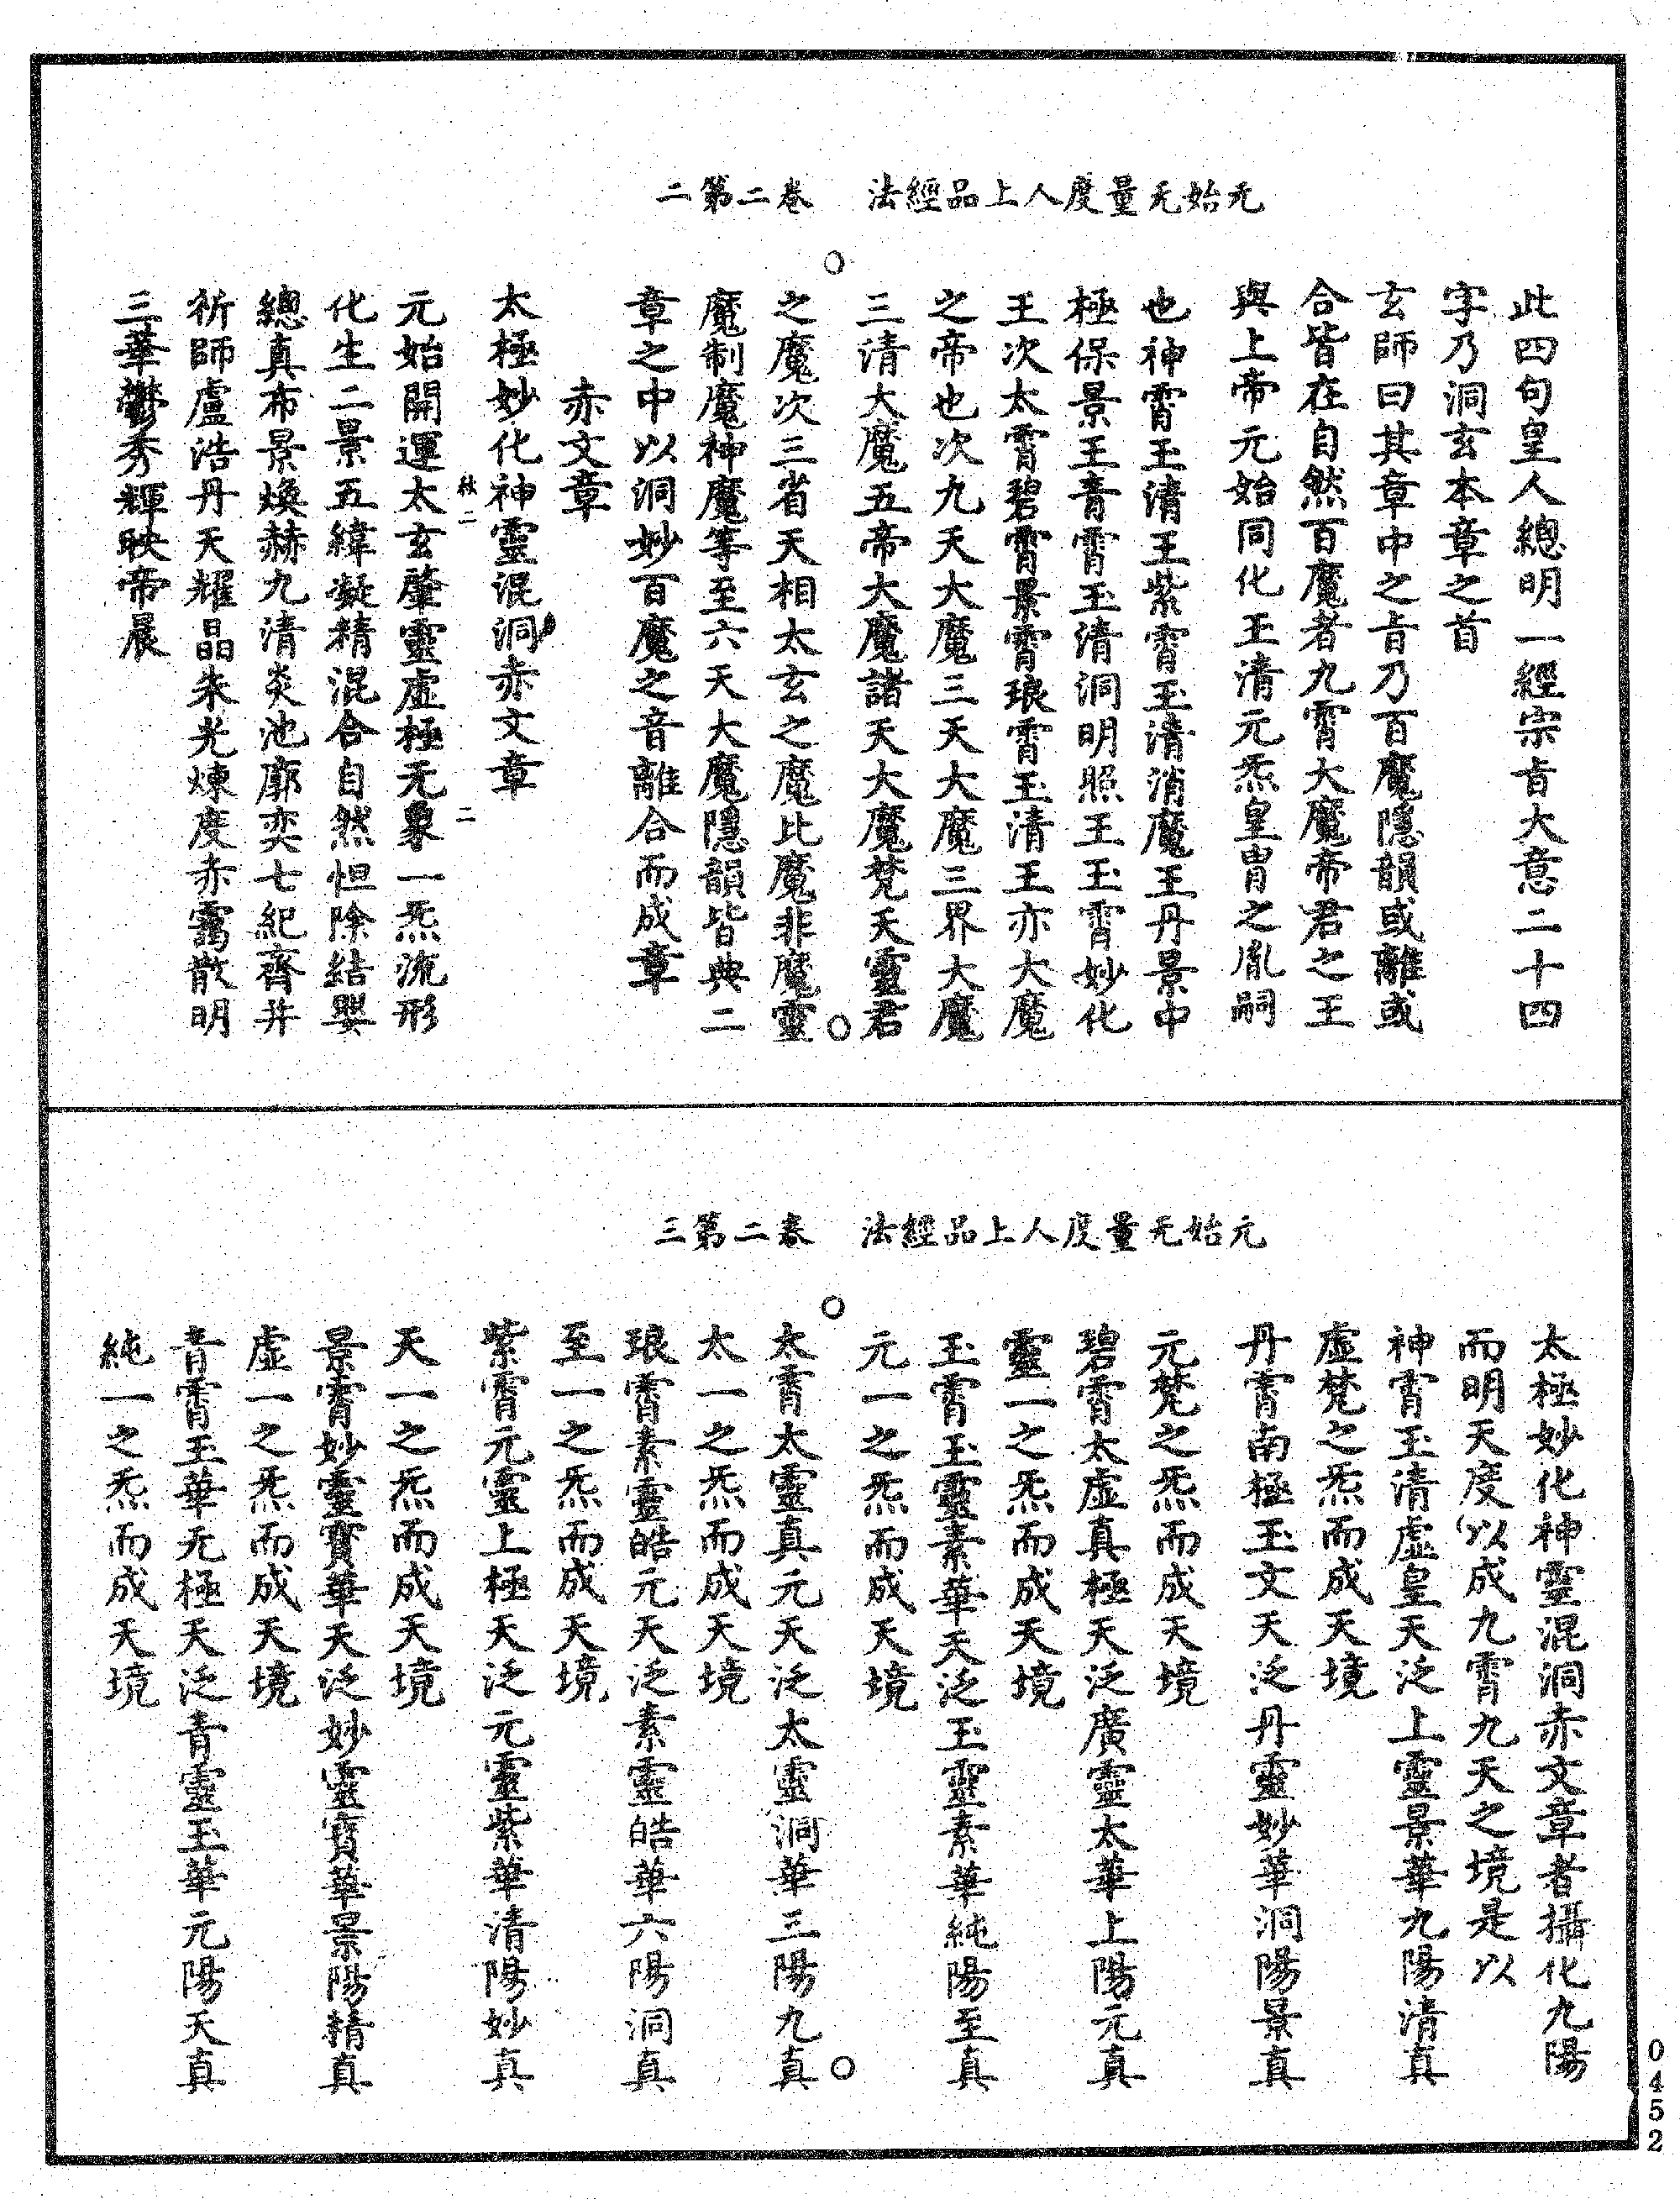 元始无量度人上品經法　卷二第二
此四句皇人總明一經宗旨大意二十四
字乃洞玄本章之首
玄師曰其章中之旨乃百魔隱韻或離或
合皆在自然百魔者九霄大魔帝君之王
與上帝元始同化玉清元炁皇胄之胤嗣
也神霄玉清王紫霄玉清消魔王丹景中
極保景王青霄玉清洞明照王玉霄妙化
王次太霄碧霄景霄琅霄玉清王亦大魔
之帝也次九天大魔三天大魔三界大魔
三清大魔五帝大魔諸天大魔梵天靈君
之魔次三省天相太玄之魔比魔非魔靈
魔制魔神魔等至六天大魔隱韻皆典二
章之中以洞妙百魔之音離合而成章
赤文章
太極妙化神靈混洞赤文章
秋二　二
元始開運太玄肇靈虛極无象一炁流形
化生二景五緯凝精混合自然怛除結嬰
總真布景煥赫九清炎池廓奕七紀齊并
祈師盧浩丹天耀晶朱光煉度赤靄散明
三華鬱秀輝映帝晨
元始无量度人上品經法　卷二第三
太極妙化神靈混洞赤文章者攝化九陽
而明天度以成九霄九天之境是以
神霄玉清虛皇天泛上靈景華九陽清真
虛梵之炁而成天境
丹霄南極玉文天泛丹靈妙華洞陽景真
元梵之炁而成天境
碧霄太虛真極天泛廣靈太華上陽元真
靈一之炁而成天境
玉霄玉靈素華天泛玉靈素華純陽至真
元一之炁而成天境
太霄太靈真元天泛太靈洞華三陽九真
太一之炁而成天境
琅霄素靈皓元天泛素靈皓華六陽洞真
至一之炁而成天境
紫霄元靈上極天泛元靈紫華清陽妙真
天一之炁而成天境
景霄妙靈寶華天泛妙靈寶華景陽精真
虛一之炁而成天境
青霄玉華无極天泛青靈玉華元陽天真
純一之炁而成天境
0452